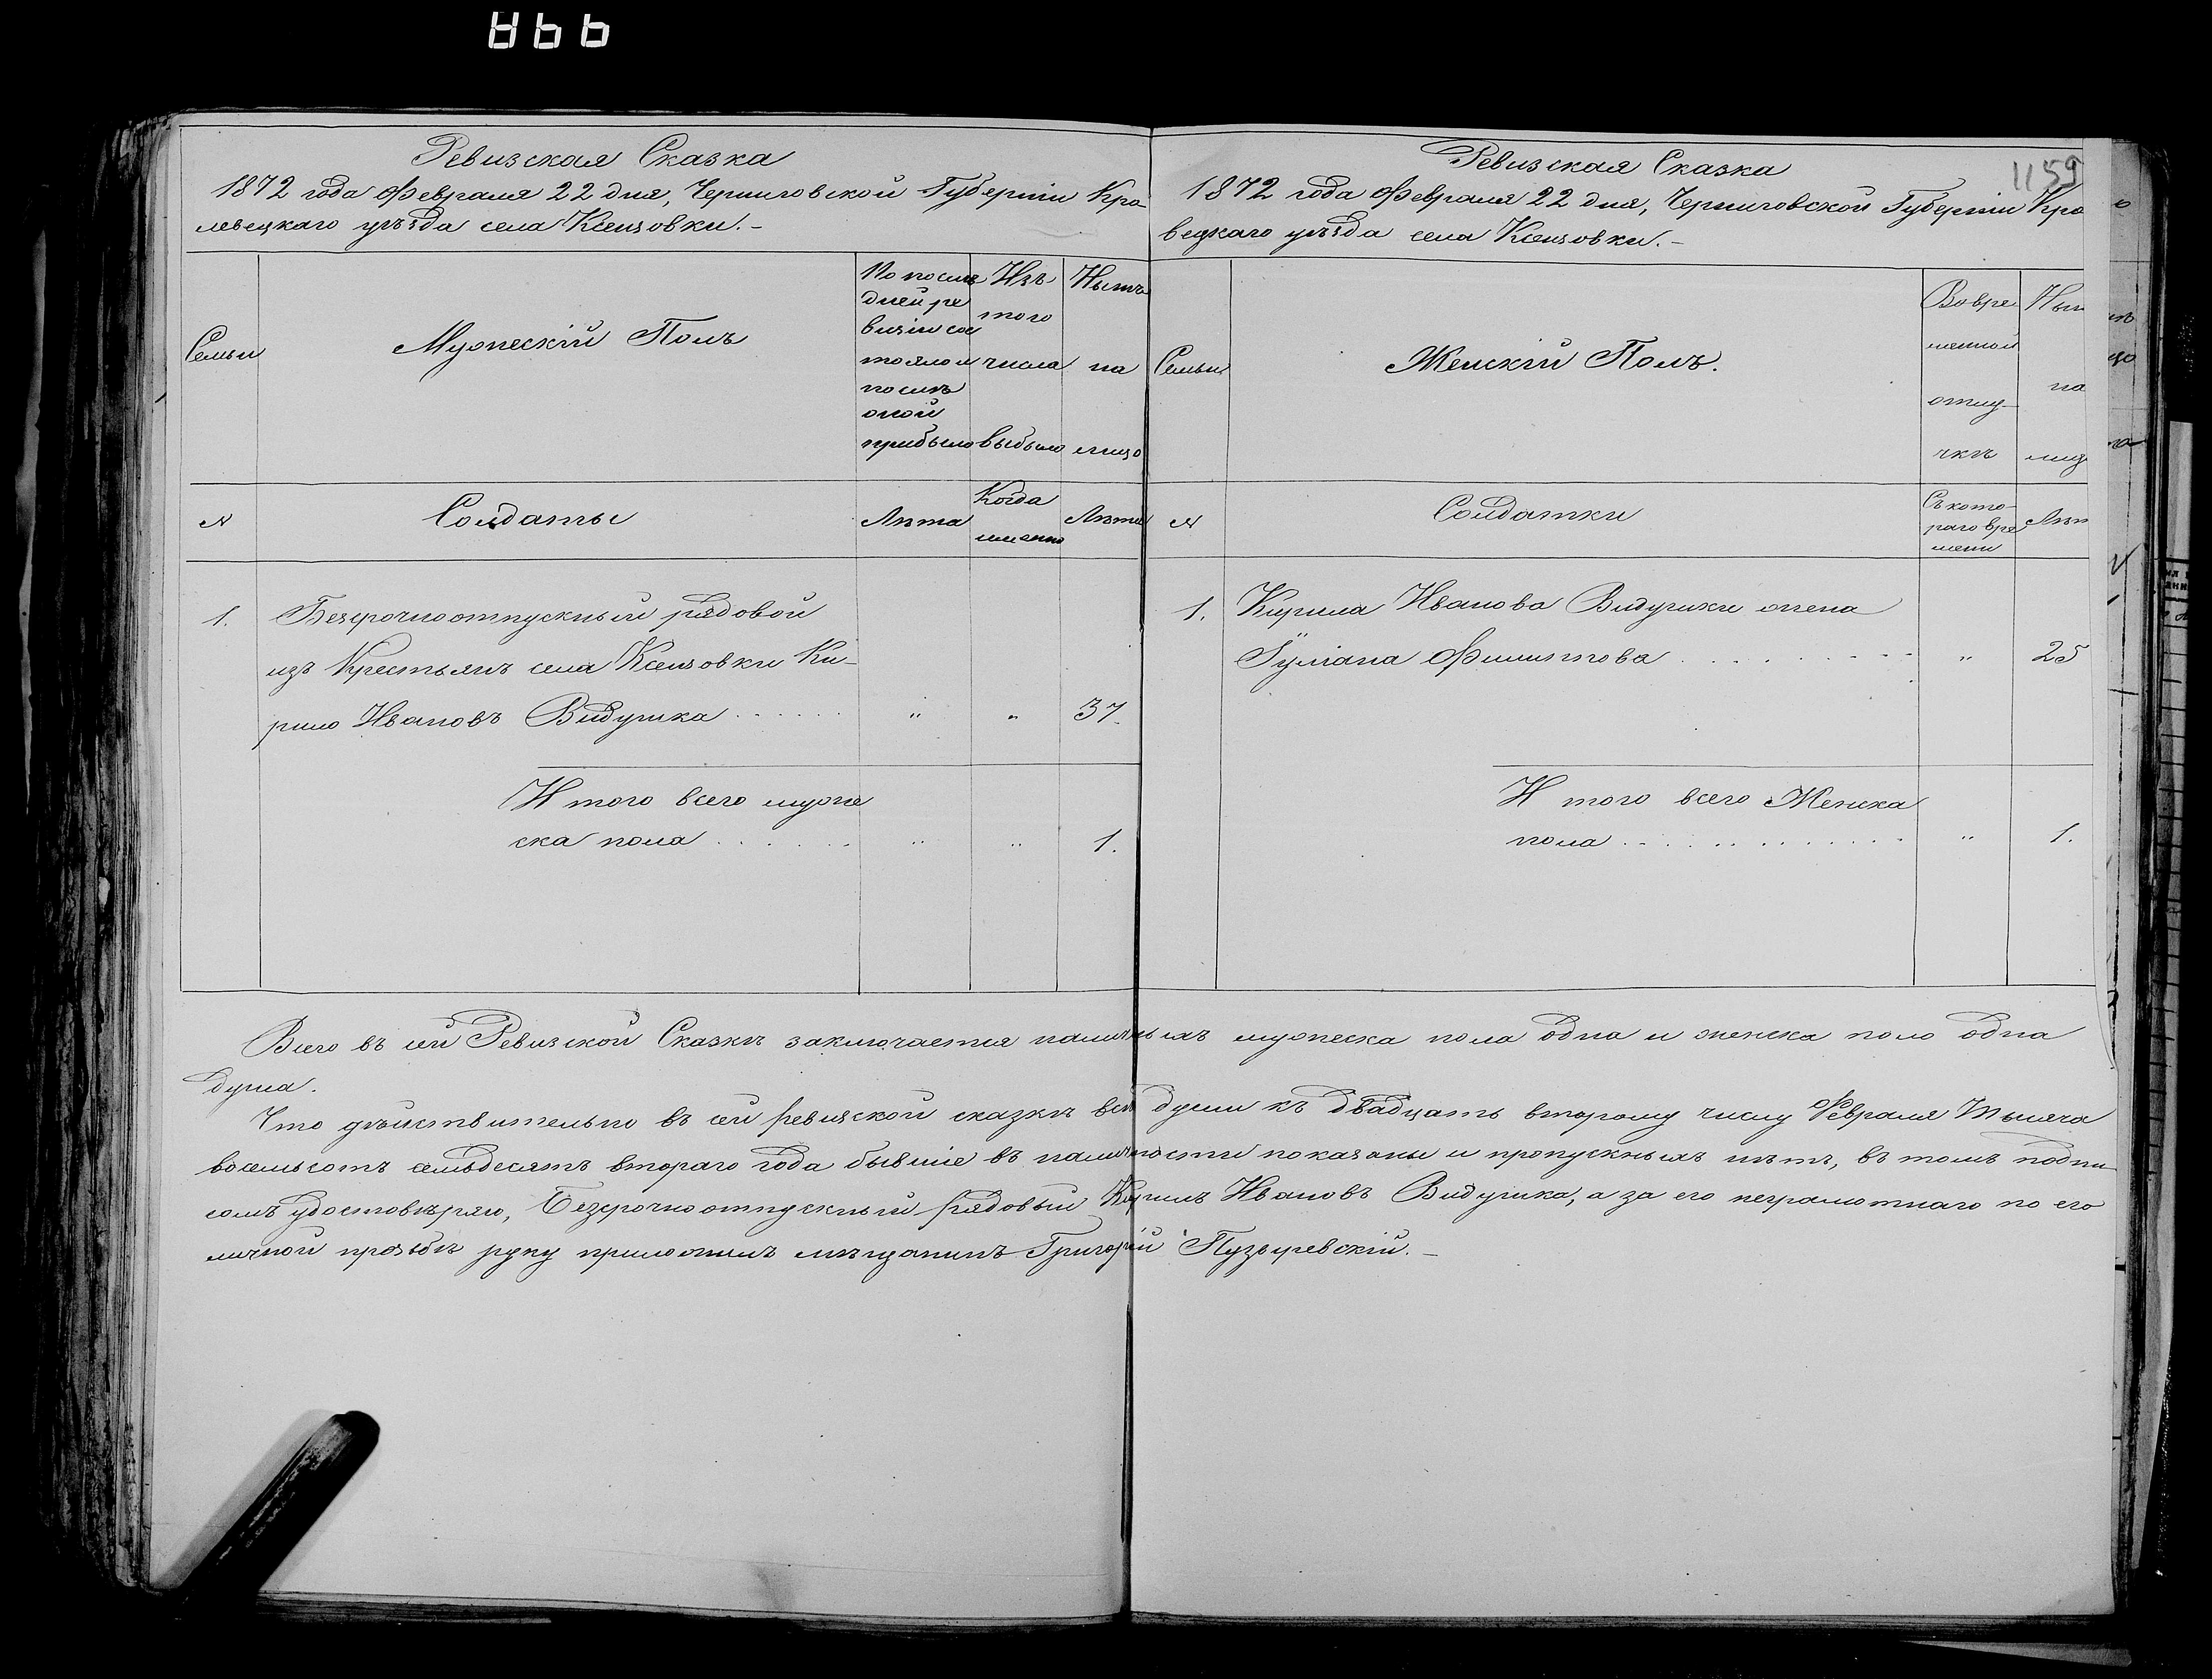 1159
Ревизская Сказка
1872 года Февраля 22 дня, Черниговской Губерніи Кро-
левецкаго уѣзда села Ксензовки.-
Семьи
Мужескій Полъ
По послѣ
дней ре
визіи сос
тояло и
послѣ
оной
прибыло
Изъ
того
числа
выбыло
Нынѣ
на
лицо
N
Солдаты
Лѣта
Когда
именно
Лѣта
1. Безсрочноотпускный рядовой
изъ Крестьянъ села Ксензовки Ки-
рило Ивановъ Видушка . . . . . . " " 37.
И того всего муже
ска пола . . . . . . " " 1.
Ревизская Сказка
1872 года Февраля 22 дня, Черниговской Губерніи Кро
вецкаго уѣзда села Ксензовки.-
Семьи
Женскій Полъ.
Во вре
менной
отлу-
чкѣ
Нын
на
лиц
N
Солдатки
Съ кото-
раго вре
мени
Лѣт
1. Кирила Иванова Видушки жена
Гуліана Филиптова . . . . . . . . . " 25
И того всего Женска
пола . . . . . . . . . . . . . " 1.
Всего въ сей Ревизской Сказкѣ заключается наличныхъ мужеска пола одна и женска поло одна
душа.
Что дѣйствительно въ сей ревизской сказкѣ всѣ души къ двадцать второму числу Февраля Тысяча
восемьсотъ семьдесятъ втораго года бывшіе въ наличности показаны и пропускныхъ нѣтъ, въ томъ подпи-
сомъ удостовѣряю, Безсрочноотпускный рядовый Кирилъ Ивановъ Видушка, а за его неграмотнаго по его
личной прозьбѣ руку приложилъ мѣщанинъ Григорій Пузыревскій.-